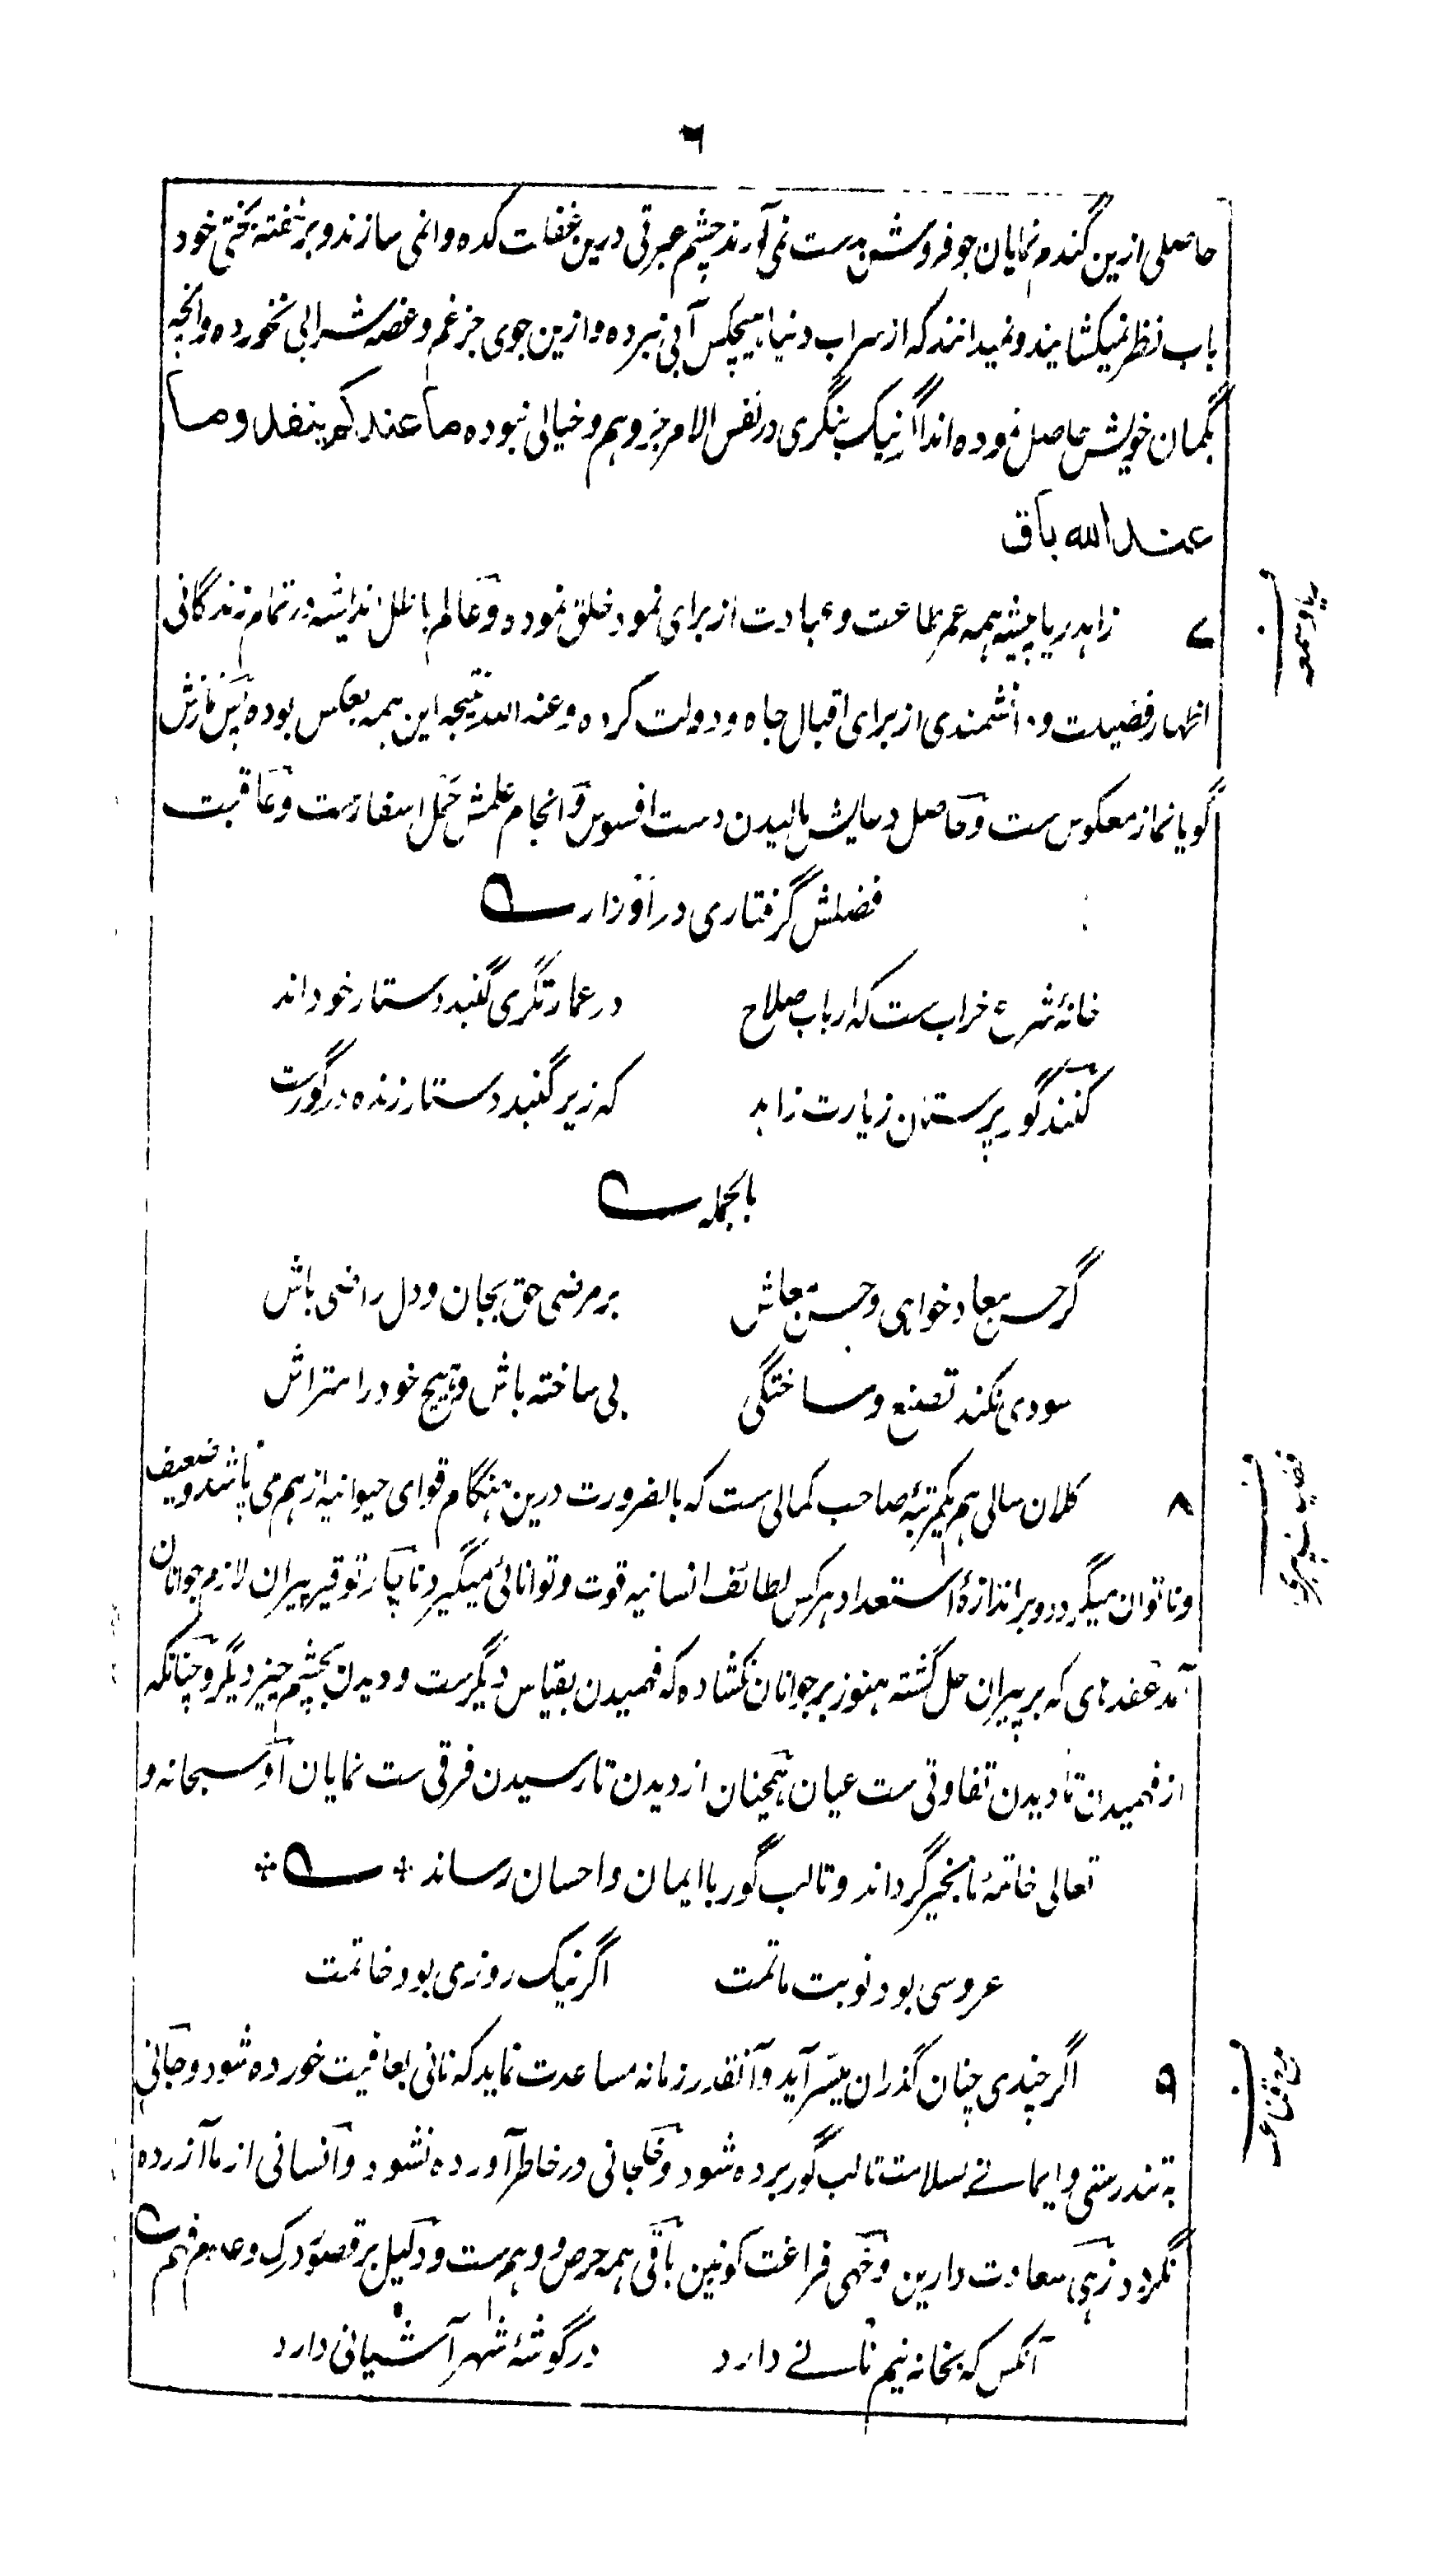 ۶
حاصلی ازین گندم نمایان جو فروش بدست نمی آرند چشم عبرتی درین غفلت کده وانمی سازند و بر خفته بختی خود
باب نظر نمیکشایند و نمیدانند که از سراب دنیا هیچکس آبی نبرده و ازین جوی جز غم و غصه شرابی نخورده و آنچه
بگمان خویش حاصل نموده اند اگر نیک بنگری در نفس الامر جز وهم و خیالی نبوده ما عندکم ینفد وما
عند الله باق
ریا و سمعه
۷ زاهد ریا پیشه همه عمر طاعت و عبادت از برای نمود خلق نموده و عالم باطل اندیشه در تمام زندگانی
اظهار فضیلت و دانشمندی از برای اقبال جاه و دولت کرده و عند الله نتیجه این همه بعکس بوده پس نمازش
گویا نماز معکوس ست و حاصل دعایش مالیدن دست افسوس و انجام علمش حمل اسفارست و عاقبت
فضلش گرفتاری در اوزار
خانهٔ شرع خراب ست که ارباب صلاح در عمارتگری گنبد دستار خود اند
کنند گور پرستان زیارت زاهد که زیر گنبد دستار زنده در گورست
بالجمله
گر حسن معاد خواهی و حسن معاش بر مرضی حق بجان و دل راضی باش
سودی نکند تصنع و ساختگی بی ساخته باش و هیچ خود را متراش
۸ کلان سالی هم یکمرتبهٔ صاحب کمالی ست که بالضرورت درین هنگام قوای حیوانیه از هم می پاشد و ضعیف
و ناتوان میگردد و بر اندازهٔ استعداد هر کس لطائف انسانیه قوت و توانائی میگیرد ناچار توقیر پیران لازم جوانان
آمد عقدهای که بر پیران حل گشته هنوز بر جوانان نکشاده که فهمیدن بقیاس دیگرست و دیدن بچشم چیز دیگر و چنانکه
از فهمیدن تا دیدن تفاوتی ست عیان همچنان از دیدن تا رسیدن فرقی ست نمایان او سبحانه و
تعالی خاتمهٔ ما بخیر گرداند و تا لب گور با ایمان و احسان رساند
عروسی بود نوبت ماتمت اگر نیک روزی بود خاتمت
۹ اگر چندی چنان گذران میسر آید و آنقدر زمانه مساعدت نماید که نانی بعافیت خورده شود و جانی
به تندرستی و ایمانے بسلامت تا لب گور برده شود و خلجانی در خاطر آورده نشود و انسانی از ما آزرده
نگردد زهی سعادت دارین و خهی فراغت کونین باقی همه حرص و وهم ست و دلیل بر قصور درک و عدم فهم
آنکس که بخانه نیم نانے دارد در گوشهٔ شهر آشیانی دارد